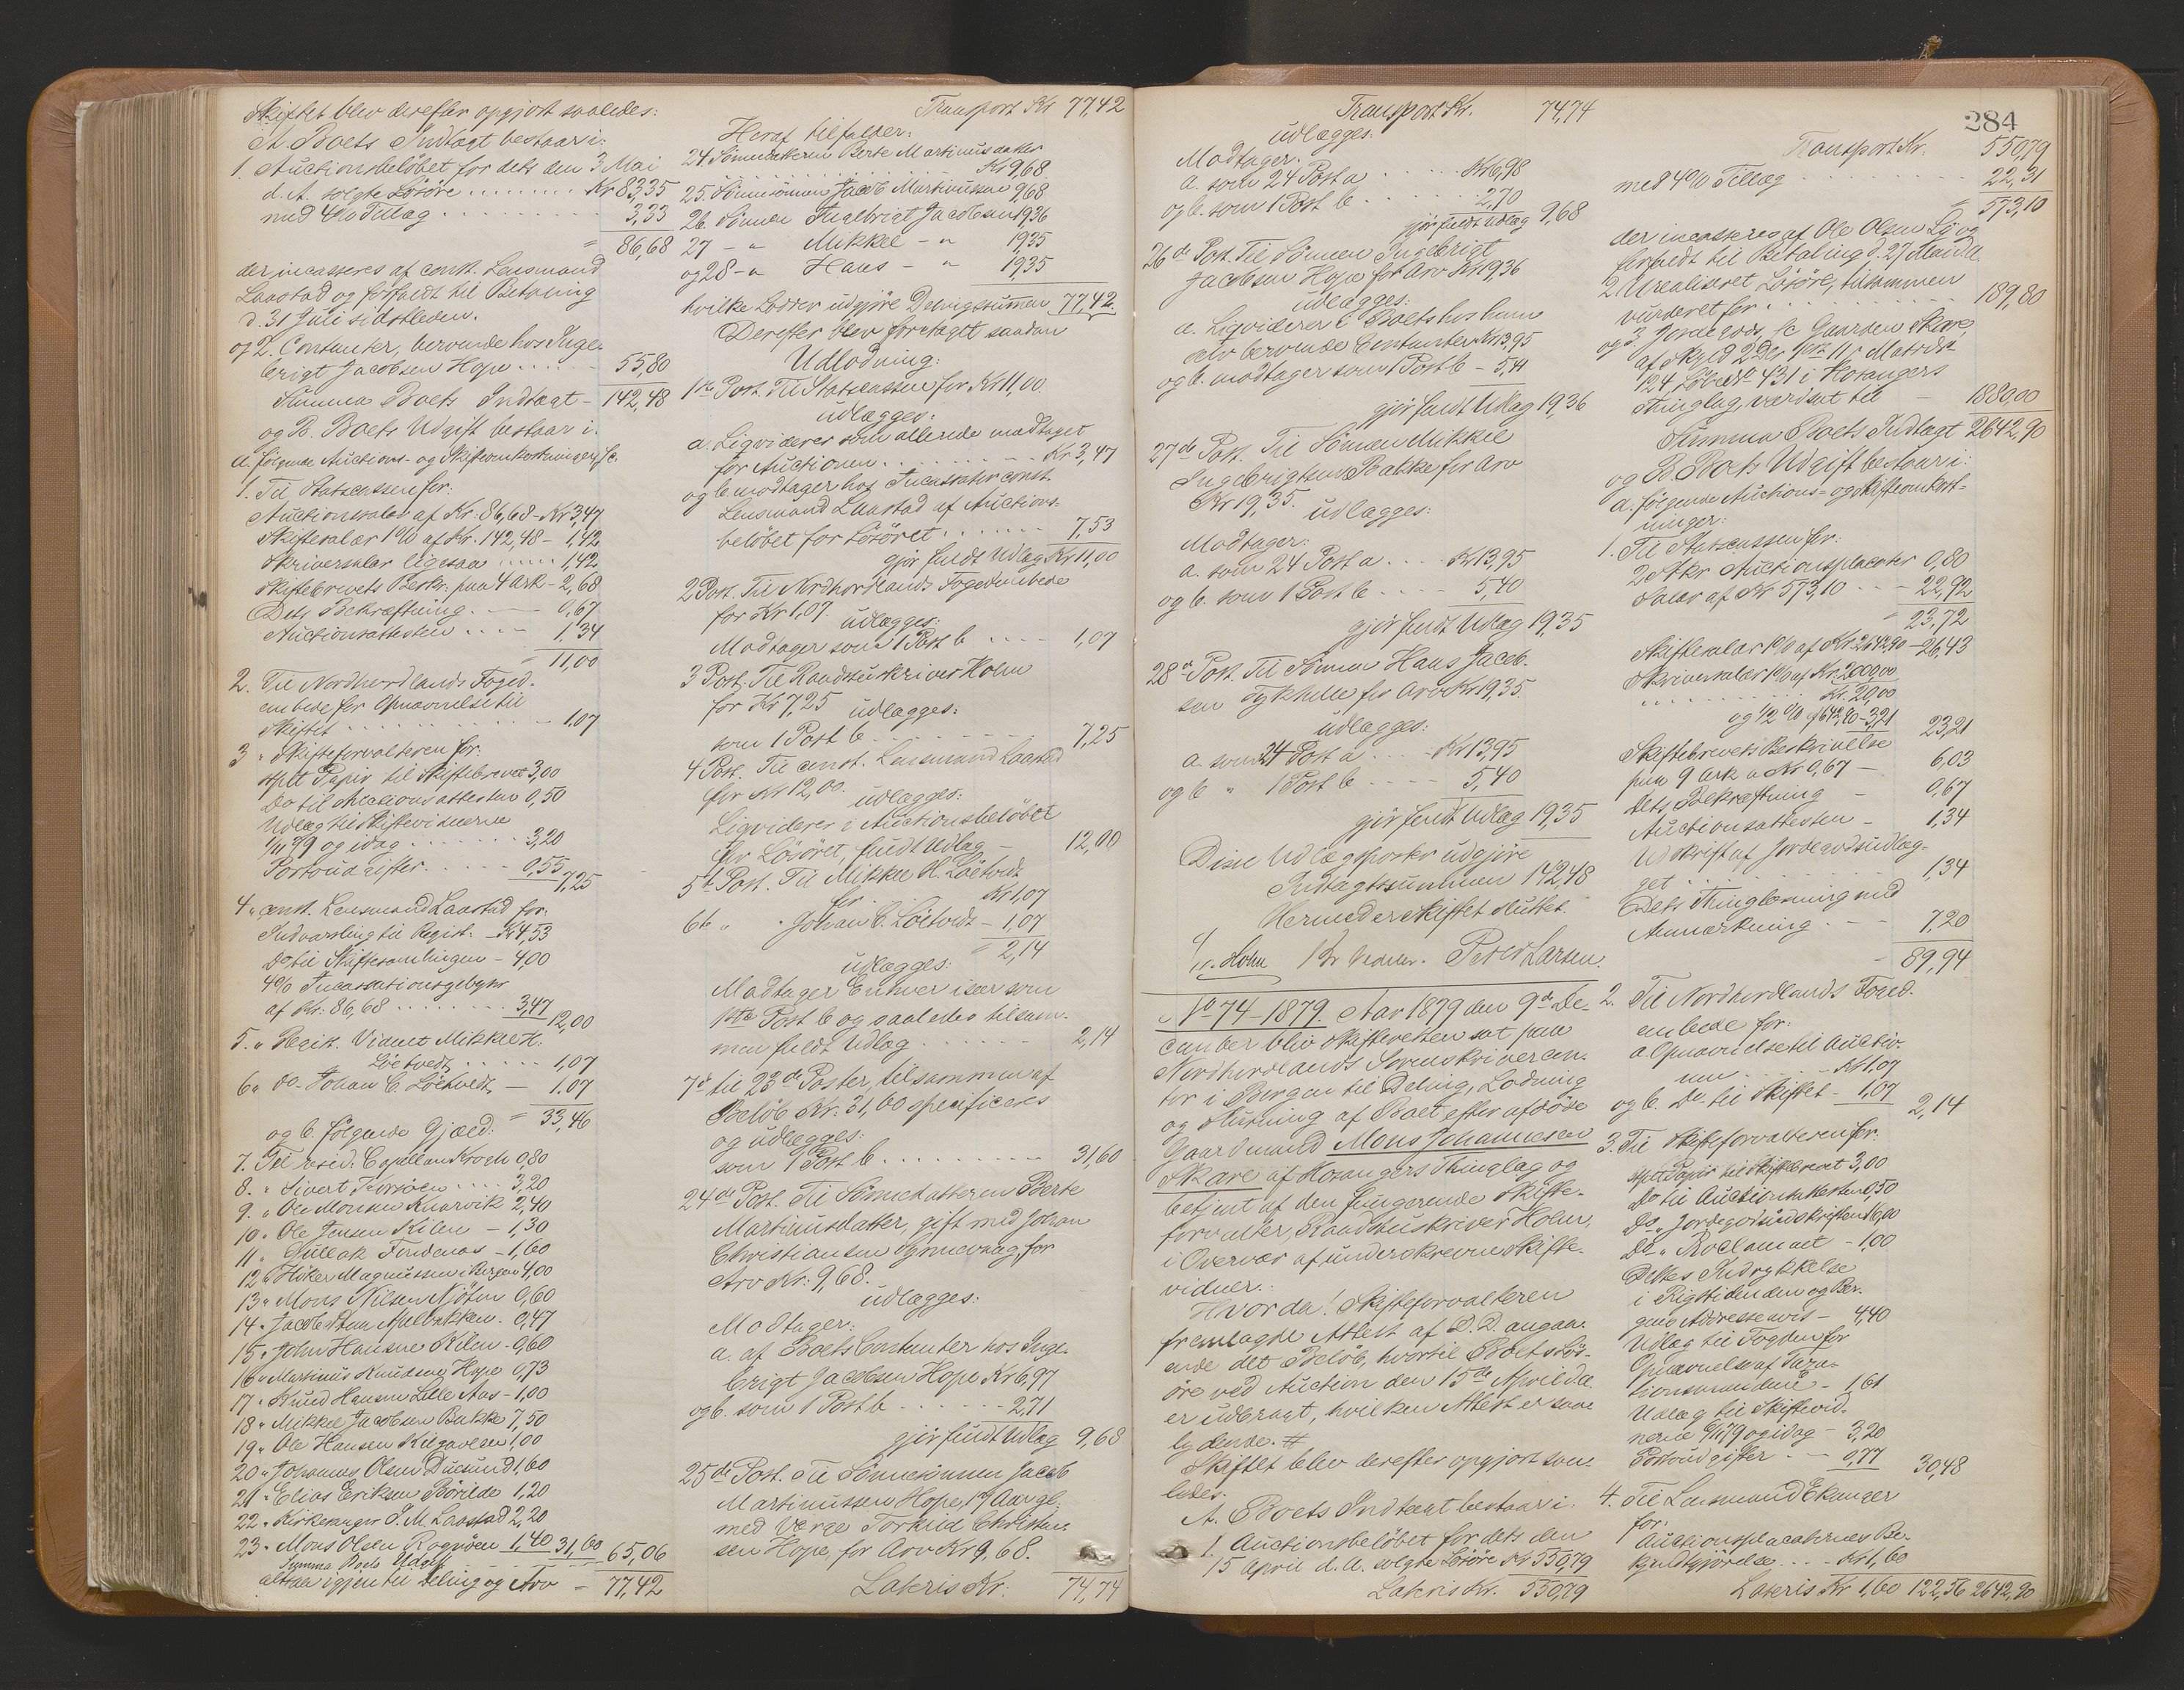 Skiftet blev derefter opgjort saaledes:
A. Boets Indtægt bestaar i:
1. Auctionsbeløbet for dets den 3 Mai
d. A. solgte Løsøre ........ Kr 83,35
med 4% Tillæg .......... 3,33
= 86,68
der incasseres af const. Lensmand
Laastad og forfaldt til Betaling
d. 31 Juli sidstleden.
og 2. Contanter, beroende hos Inge-
brigt Jacobsen Hope ..... 55,80
Summa Boets Indtægt - 142,48
og B. Boets Udgift bestaar i:
a. følgende Auctions- og Skifteomkostninger, sc.
1. Til Statscassen for:
Auctionssalær af Kr. 86,68 - Kr 3,47
Skiftesalær 1% af Kr. 142,48 - 1,42
Skriversalær ligesaa ..... 1,42
Skiftebrevets Beskr. paa 4 Ark - 2,68
Dets Bekræftning. - 0,67
Auctionsattesten .... - 1,34
= 11,00
2. Til Nordhordlands Foged-
embede for Opnævnelse til
Skiftet .......... - 1,07
3 " Skifteforvalteren for:
stplt Papir til Skiftebrevet 3,00
Do til Auctionsattesten 0,50
Udlæg til Skiftevidnerne
og idag ....... 3,20
Portoudgifter ..... 0,55
7,25
4 " const. Lensmand Laastad for:
Indvarsling til Regist. - Kr 4,53
Do til Skiftesamlingen - 4,00
4% Incassationsgebyr
af Kr. 86,68 ....... 3,47
12,00
5. " Regist. Vidnet Mikkel H.
Löetvedt ...... 1,07
6 " do - Johan C. Löetvedt - 1,07
= 33,46
og b. følgende Gjæld:
7. Til resid: Capellan Kroch 0,80
8. " Sivert .... 3,20
9. " Ole Monsen Knarvik 2,40
10 " Ole Jensen Kilen - 1,30
11 " Fondenæs - 1,60
12 " Høker Magnussen i Bergen 4,00
13 " Mons Nilsen 0,60
14 " Jacob 0,47
15 " John Hansen Kilen - 0,60
16 " Martinus Knudsen Hope 0,73
17 " Knud Hansen Lille Aas - 1,00
18 " Mikkel Jacobsen Bakke 7,50
19 " Ole Hansen 1,00
20 " Johannes Olsen 1,60
21 " Elias Eriksen 1,20
22 " Kirkesanger J. M. Laastad 2,20
23 " Mons Olsen 1,40 31,60 65,06
Summa Boets Udgift
altsaa igjen til Deling og Arv - 77,42
Transport Kr 77,42
Heraf tilfalder:
24. Sønnedatteren Berte Martinusdatter
Kr 9,68
25. Sønnesønnen Jacob Martinussen 9,68
26. Sønnen Ingebrigt Jacobsen 19,36
27 - " Mikkel - " 19,35
og 28 - " Hans - " 19,35
hvilke Lodder udgjøre Delingssummen 77,42.
Derefter blev foretaget saadan
Udlodning:
1ste Post. Til Statscassen for Kr 11,00
udlægges:
a. Ligviderer som allerede modtaget
for Auctionen ......... Kr 3,47
og b. modtager hos Incassator const.
Lensmand Laastad af Auctions-
beløbet for Løsøret ...... 7,53
gjør fuldt Udlæg Kr 11,00
2 Post. Til Nordhordlands Fogedembede
for Kr 1,07. udlægges:
Modtager som 1 Post b .... 1,07
3 Post. Til Raadstuskriver Holm
for Kr 7,25 udlægges:
som 1 Post b ....... 7,25
4 Post. Til const. Lensmand Laastad
for Kr 12,00. udlægges:
Ligviderer i Auctionsbeløbet
for Løsøret, fuldt Udlæg - 12,00
5t Post. Til Mikkel H. Löetvedt
for . . . Kr 1,07
6te " " Johan C. Löetvedt - 1,07
= 2,14
udlægges:
Modtager Enhver især som
1ste Post b og saaledes tilsam-
men fuldt Udlæg ...... 2,14
7de til 23de Poster, tilsammen af
Beløb Kr. 31,60 specificeres
og udlægges:
som 1 Post b ......... 31,60
24de Post. Til Sønnedatteren Berte
Martinusdatter, gift med Johan
Christiansen for
Arv Kr. 9,68.
udlægges:
Modtager:
a. af Boets Contanter hos Inge-
brigt Jacobsen Hope Kr 6,97
og b. som 1 Post b ...... 2,71
gjør fuldt Udlæg 9,68
25de Post. Til Sønnesønnen Jacob
Martinussen Hope, 17 Aar gl.
med Værge Torkild Christen-
sen Hope, for Arv Kr 9,68.
Lateris Kr. 74,74
Transport Kr. 74,74
udlægges:
Modtager:
a. som 24 Post a .... Kr 6,98
og b. som 1 Post b ..... 2,70
gjør fuldt Udlæg 9,68
26de Post. Til Sønnen Ingebrigt
Jacobsen Hope for Arv Kr 19,36
udlægges:
a. Ligviderer i Boets hos ham
selv beroende Contanter Kr 13,95
og b. modtager som 1 Post b - 5,41
gjør fuldt Udlæg 19,36
27de Post. Til Sønnen Mikkel
Ingebrigtsen Bakke for Arv
Kr 19,35. udlægges:
Modtager:
a. som 24 Post a .... Kr 13,95
og b. som 1 Post b .... 5,40
gjør fuldt Udlæg 19,35
28de Post. Til Sønnen Hans Jacob-
sen for Arv Kr 19,35.
udlægges:
a. som 24 Post a ... Kr 13,95
og b " 1 Post b .... 5,40
gjør fuldt Udlæg 19,35
Disse Udlægsposter udgjøre
Indtægtssummen 142,48
Hermed er Skiftet sluttet.
Holm Peter Larsen.
No 74 - 1879. Aar 1879 den 9de De-
cember blev Skifteretten sat paa
Nordhordlands Sorenskrivercon-
tor i Bergen til Deling, Lodning
og Slutning af Boet efter afdøde
Gaardmand Mons Johannesen
Skare af Hosangers Thinglag og
betjent af den fungerende Skifte-
forvalter, Raadstuskriver Holm,
i Overvær af underskrevne Skifte-
vidner.:
Hvorda! Skifteforvalteren
fremlagde Attest af D. D. angaa-
ende det Beløb, hvortil Boets Løs-
øre ved Auction den 15de April d. A.
er udbragt, hvilken Attest er saa-
lydende. #
Skiftet blev derefter opgjort saa-
ledes.
A. Boets Indtægt bestaar i:
1. Auctionsbeløbet for dets den
15 April d. A. solgte Løsøre Kr 550,79
Lateris Kr. 550,79
284
Transport Kr. 550,79
med 4% Tillæg ....... 22,31
= 573,10
der incasseres af Ole Olsen og
forfaldt til Betaling d. 27 Mai d. A.
2 Urealiseret Løsøre, tilsammen
vurderet for ......... 189,80
og 3. Jordegods, sc Gaarden Skare,
af Skyld 2 Dlr 11 s Matr. No
124 Løbe No 431 i Hosangers
Thinglag, værdsat til - 1880,00
Summa Boets Indtægt 2642,90
og B. Boets Udgift bestaar i:
a. følgende Auctions- og Skifteomkost-
ninger:
1. Til Statscassen for:
2 Stkr Auctionsplacater 0,80
Salær af Kr 573,10 - - 22,92
= 23,72
Skiftesalær 1% af Kr. 2642,90 - 26,43
Skriversalær 1% af Kr. 2000,00
....... Kr. 20,00
og 1/2 % af 642,90 - 3,21 23,21
Skiftebrevets Beskrivelse
paa 9 Ark a Kr 0,67 - 6,03
dets Bekræftning - 0,67
Auctionsattesten - 1,34
Udskrift af Jordegodsudlæg-
get ........ 1,34
Dets Thinglæsning med
Anmærkning . - - 7,20
- 89,94
2. Til Nordhordlands Foged-
embede for:
a Opnævnelse til Auctio-
nen ..... Kr 1,07
og b. Do til Skiftet - 1,07 2,14
3. Til Skifteforvalteren for:
stplt Papir til Skiftebrevet 3,00
Do til Auctionsattesten 0,50
Do " Jordegodsudskriften 16,00
Do " Proclamaet - 1,00
Dettes Indrykkelse
i Rigstidenden og Ber-
gens Adresseavis - 4,40
Udlæg til Fogden for
Opnævnelse af Taxa-
tionsmændene - 1,61
Udlæg til Skiftevid-
nerne og idag - 3,20
Portoudgifter - - 0,77 30,48
4. Til Lensmand Ekanger
for:
Auctionsplacaternes Be-
kjendtgjørelse ... - Kr 1,60
Lateris Kr 1,60 122,56 2642,90